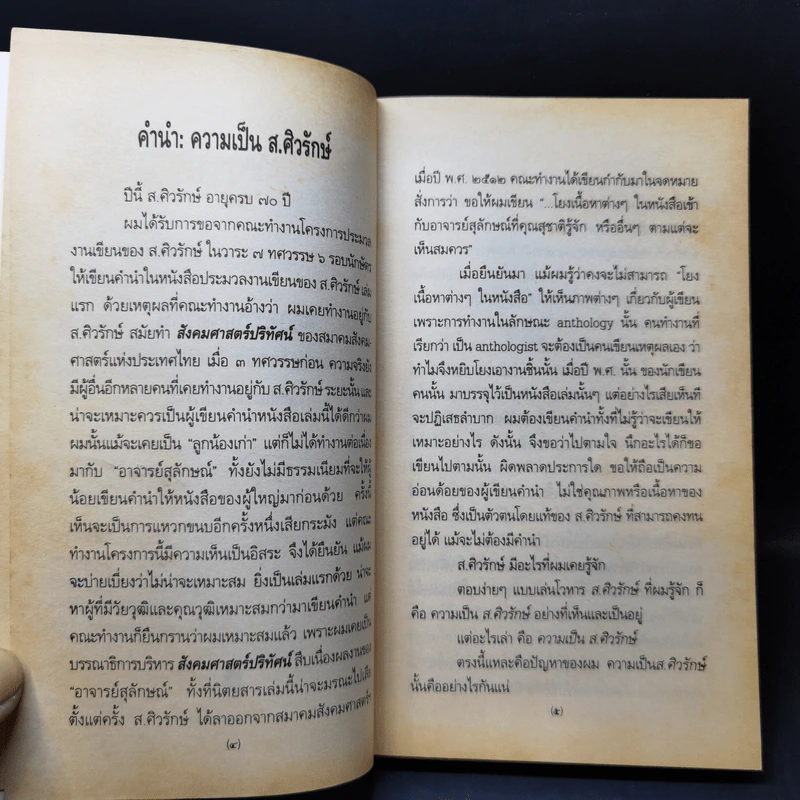 คำนำ: ความเป็น ส.ศิวรักษ์
ปีนี้ ส.ศิวรักษ์ อายุครบ ๗๐ ปี
ผมได้รับการขอจากคณะทำงานโครงการประมวล
งานเขียนของ ส.ศิวรักษ์ ในวาระ ๗ ทศวรรษ ๖ รอบนักษัตร
ให้เขียนคำนำในหนังสือประมวลงานเขียนของ ส.ศิวรักษ์ เล่ม
แรก ด้วยเหตุผลที่คณะทำงานอ้างว่า ผมเคยทำงานอยู่กับ
ส.ศิวรักษ์ สมัยทำ สังคมศาสตร์ปริทัศน์ ของสมาคมสังคม-
ศาสตร์แห่งประเทศไทย เมื่อ ๓ ทศวรรษก่อน ความจริงยัง
มีผู้อื่นอีกหลายคนที่เคยทำงานอยู่กับ ส.ศิวรักษ์ ระยะนั้น และ
น่าจะเหมาะควรเป็นผู้เขียนคำนำหนังสือเล่มนี้ได้ดีกว่าผม
ผมนั้นแม้จะเคยเป็น “ลูกน้องเก่า” แต่ก็ไม่ได้ทำงานต่อเนื่อง
มากับ “อาจารย์สุลักษณ์” ทั้งยังไม่มีธรรมเนียมที่จะให้ผู้
น้อยเขียนคำนำให้หนังสือของผู้ใหญ่มาก่อนด้วย ครั้งนี้
เห็นจะเป็นการแหวกขนบอีกครั้งหนึ่งเสียกระมัง แต่คณะ
ทำงานโครงการนี้มีความเห็นเป็นอิสระ จึงได้ยืนยัน แม้ผม
จะบ่ายเบี่ยงว่าไม่น่าจะเหมาะสม ยิ่งเป็นเล่มแรกด้วย น่าจะ
หาผู้ที่มีวัยวุฒิและคุณวุฒิเหมาะสมกว่ามาเขียนคำนำ แต่
คณะทำงานก็ยืนกรานว่าผมเหมาะสมแล้ว เพราะผมเคยเป็น
บรรณาธิการบริหาร สังคมศาสตร์ปริทัศน์ สืบเนื่องผลงานของ
“อาจารย์สุลักษณ์” ทั้งที่นิตยสารเล่มนี้น่าจะมรณะไปเสีย
ตั้งแต่ครั้ง ส.ศิวรักษ์ ได้ลาออกจากสมาคมสังคมศาสตร์ฯ
(๔)
เมื่อปี พ.ศ. ๒๕๑๒ คณะทำงานได้เขียนกำกับมาในจดหมาย
สั่งการว่า ขอให้ผมเขียน “...โยงเนื้อหาต่างๆ ในหนังสือเข้า
กับอาจารย์สุลักษณ์ที่คุณสุชาติรู้จัก หรืออื่นๆ ตามแต่จะ
เห็นสมควร”
เมื่อยืนยันมา แม้ผมรู้ว่าคงจะไม่สามารถ “โยง
เนื้อหาต่างๆ ในหนังสือ” ให้เห็นภาพต่างๆ เกี่ยวกับผู้เขียน
เพราะการทำงานในลักษณะ anthology นั้น คนทำงานที่
เรียกว่า เป็น anthologist จะต้องเป็นคนเขียนเหตุผลเอง ว่า
ทำไมจึงหยิบโยงเอางานชิ้นนั้น เมื่อปี พ.ศ. นั้น ของนักเขียน
คนนั้น มาบรรจุไว้เป็นหนังสือเล่มนั้นๆ แต่อย่างไรเสียเห็นที
จะปฏิเสธลำบาก ผมต้องเขียนคำนำทั้งที่ไม่รู้ว่าจะเขียนให้
เหมาะอย่างไร ดังนั้น จึงขอว่าไปตามใจ นึกอะไรได้ก็ขอ
เขียนไปตามนั้น ผิดพลาดประการใด ขอให้ถือเป็นความ
อ่อนด้อยของผู้เขียนคำนำ ไม่ใช่คุณภาพหรือเนื้อหาของ
หนังสือ ซึ่งเป็นตัวตนโดยแท้ของ ส.ศิวรักษ์ ที่สามารถคงทน
อยู่ได้ แม้จะไม่ต้องมีคำนำ
ส.ศิวรักษ์ มีอะไรที่ผมเคยรู้จัก
ตอบง่ายๆ แบบเล่นโวหาร ส.ศิวรักษ์ ที่ผมรู้จัก ก็
คือ ความเป็น ส.ศิวรักษ์ อย่างที่เห็นและเป็นอยู่
แต่อะไรเล่า คือ ความเป็น ส.ศิวรักษ์
ตรงนี้แหละคือปัญหาของผม ความเป็นส.ศิวรักษ์
นั้นคืออย่างไรกันแน่
(๕)